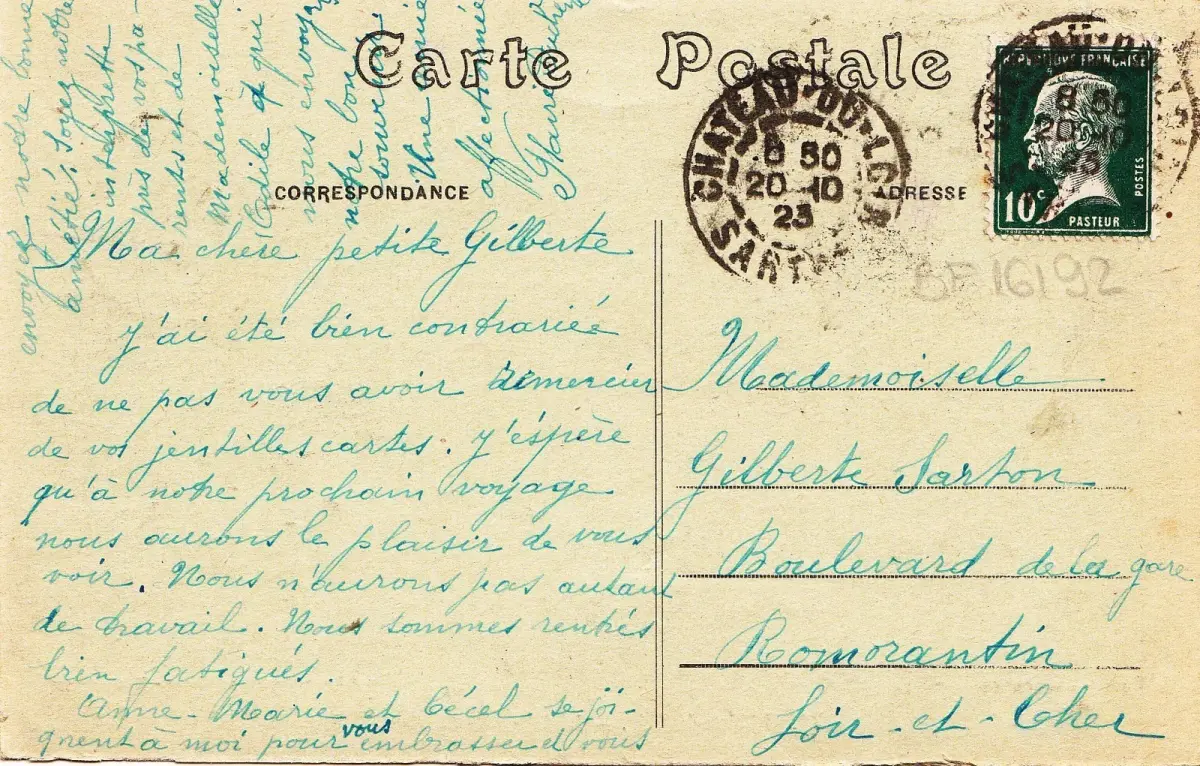 Carte Postale
CORRESPONDANCE
ADRESSE
CHATEAU-DU-LOIR
8 50
20-10
23
SARTHE
REPUBLIQUE FRANÇAISE
8 50
20-10
23
POSTES
10c
PASTEUR
BF 16192
Ma chère petite Gilberte
J'ai été bien contrariée
de ne pas vous avoir remercier
de vos jentilles cartes. J'éspère
qu'à notre prochain voyage
nous aurons le plaisir de vous
voir. Nous n'aurons pas autant
de travail. Nous sommes rentrés
bien fatigués.
Anne-Marie et Cécel se joi-
gnent à moi pour vous embrasser et vous
envoyer notre bonne
amitié. Soyez notre
interprette
près de vos pa-
rents et de
Mademoiselle
Odile à qui
vous envoyez
notre bon
souvenir
Une amie
affectionnée
Mademoiselle
Gilberte Sarton
Boulevard de la gare
Romorantin
Loir-et-Cher